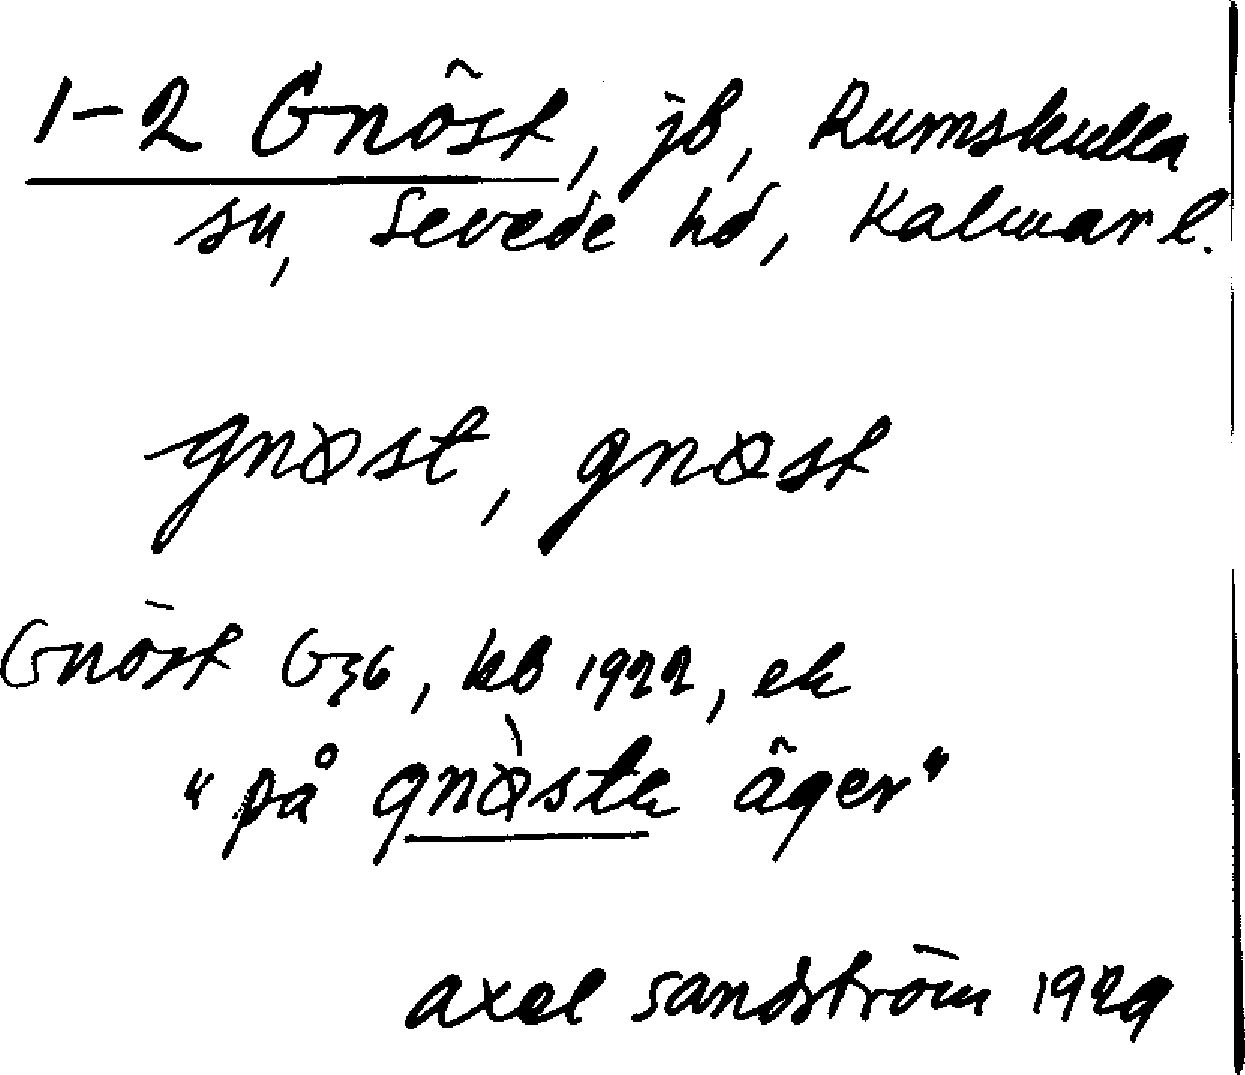 1-2 Gnöst, jb, Rumskulla
sn, Sevede hd, Kalmar l.
gnøst, gnøst
Gnöst G36, kb 1922, ek
"på gnø̀ste äger"
Axel Sandström 1929